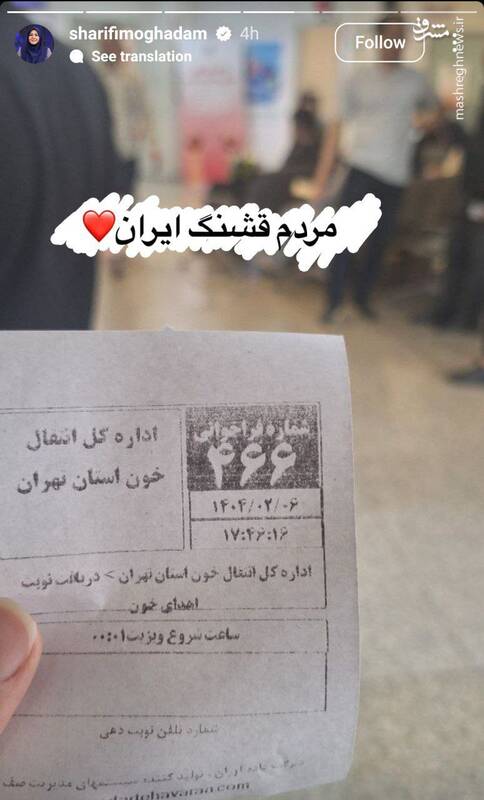 sharifimoghadam 4h
See translation
Follow
مشرق
mashreghnews.ir
مردم قشنگ ایران❤️
شماره فراخوانی
۴۶۶
۱۴۰۴/۰۲/۰۶
۱۷:۴۶:۱۶
اداره کل انتقال
خون استان تهران
اداره کل انتقال خون استان تهران > دریافت نوبت
اهدای خون
ساعت شروع ویزیت ۰۰:۰۱
شماره تلفن نوبت دهی
تولید کننده سیستمهای مدیریت صف